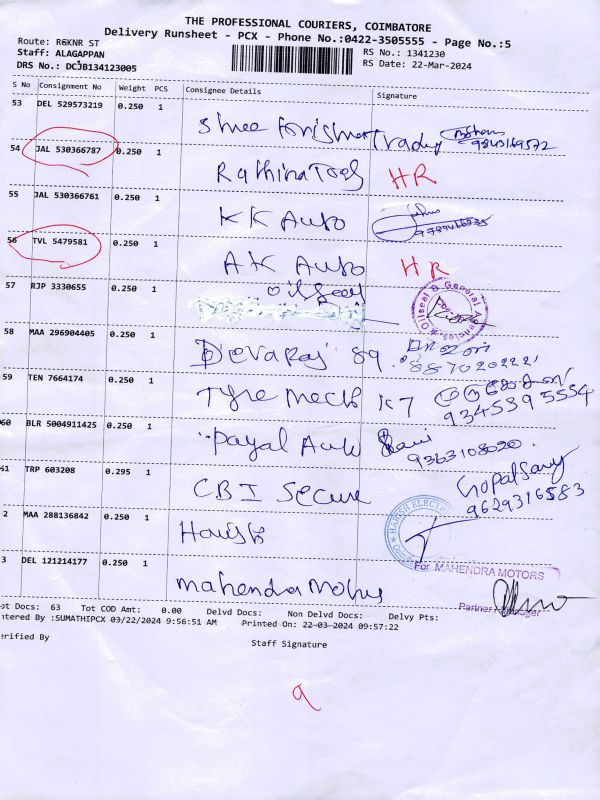 THE PROFESSIONAL COURIERS, COIMBATORE
Delivery Runsheet - PCX - Phone No.:0422-3505555 - Page No.:5
Route: R6KNR ST
RS No.: 1341230
Staff: ALAGAPPAN
RS Date: 22-Mar-2024
DRS No.: DCJB134123005
S No Consignment No Weight PCS Consignee Details Signature
53 DEL 529573219 0.250 1
Shree Trady
9843169572
54 JAL 530366787 0.250 1
Rathina Tools HR
55 JAL 530366761 0.250 1
KK Auto
56 TVL 5479581 0.250 1
AK Auto HR
57 RJP 3330655 0.250 1
oil seal
Oilseal & General Agencies
58 MAA 296904405 0.250 1
Devaraj 89.
8870202221
59 TEN 7664174 0.250 1
Tyre Mech K7
9345395554
60 BLR 5004911425 0.250 1
Payal Auto Ravi
9363108020.
61 TRP 603208 0.295 1
CBI Secure
Gopalsamy
9629316583
2 MAA 288136842 0.250 1
HARISH ELECT
3 DEL 121214177 0.250 1
Mahendra Motors
For MAHENDRA MOTORS
Partner / Manager
ot Docs: 63 Tot COD Amt: 0.00 Delvd Docs: Non Delvd Docs: Delvy Pts:
ntered By :SUMATHIPCX 03/22/2024 9:56:51 AM Printed On: 22-03-2024 09:57:22
erified By Staff Signature
9